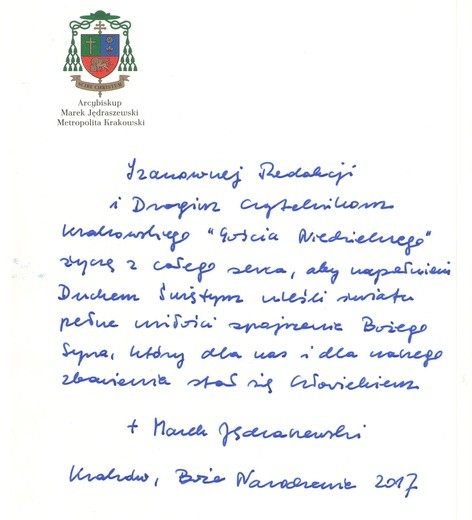 SCIRE CHRISTUM
Arcybiskup
Marek Jędraszewski
Metropolita Krakowski
Szanownej Redakcji
i Drogim Czytelnikom
Krakowskiego "Gościa Niedzielnego"
życzę z całego serca, aby napełnieni
Duchem Świętym nieśli światu
pełne miłości spojrzenie Bożego
Syna, który dla nas i dla naszego
zbawienia stał się Człowiekiem
+ Marek Jędraszewski
Kraków, Boże Narodzenie 2017